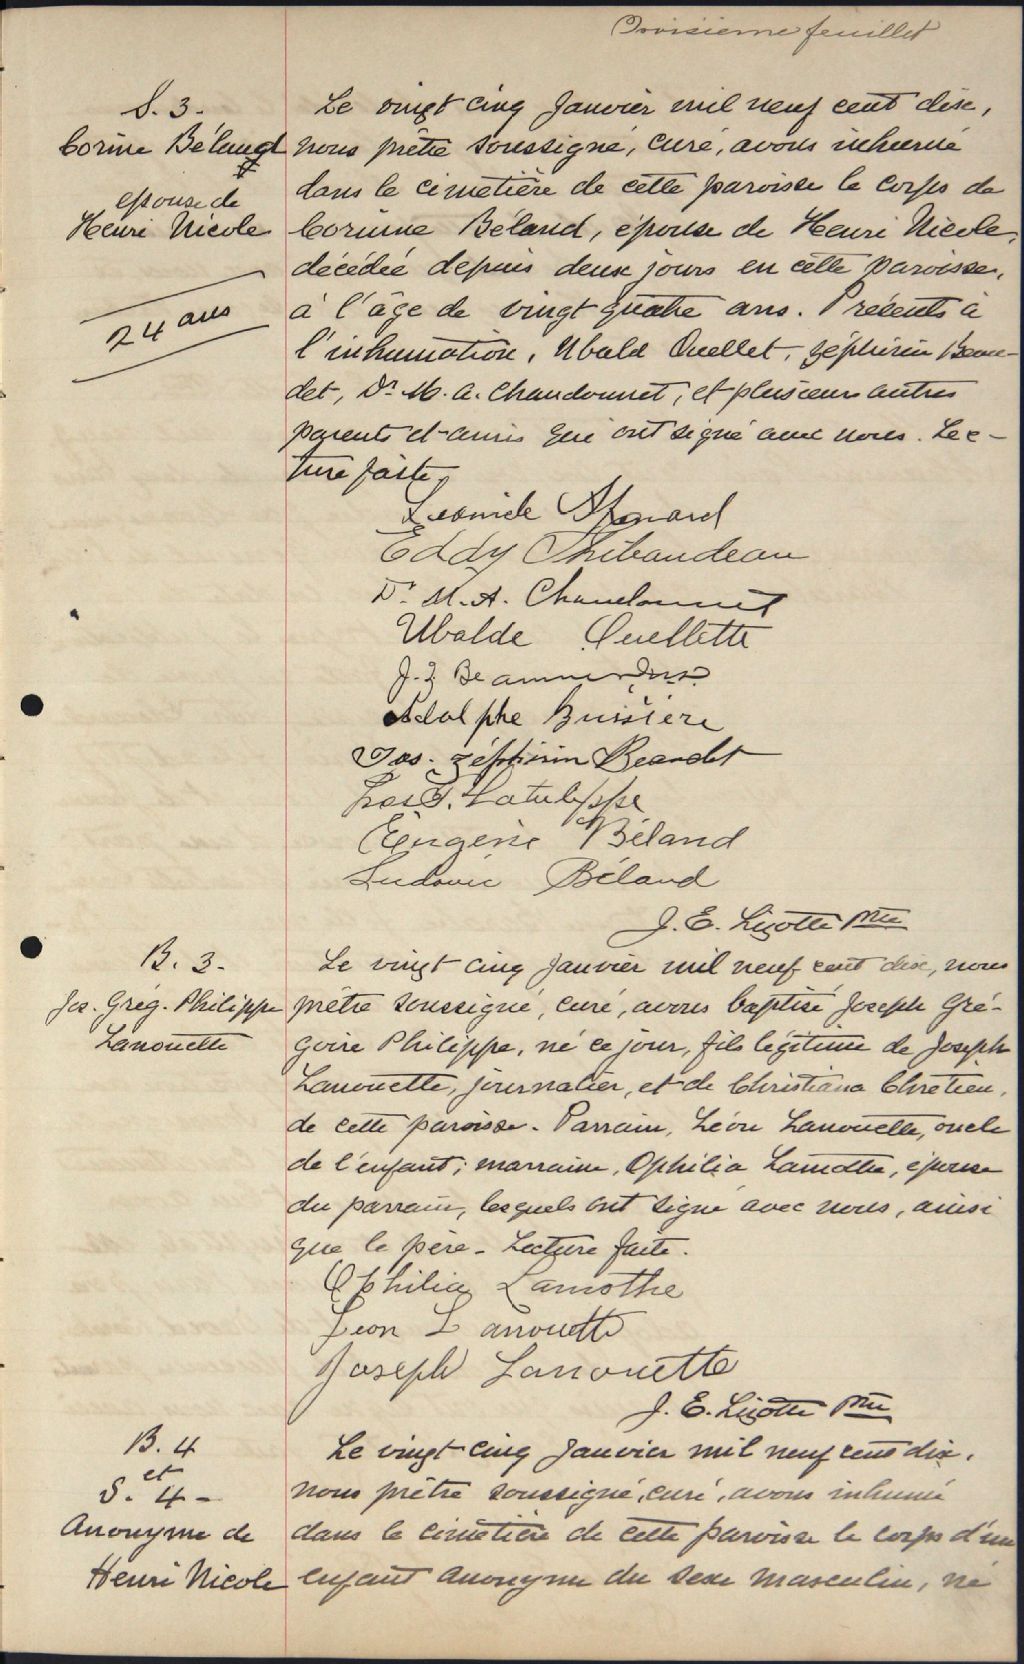 Troisieme feuillet
S. 3.
Corine Béland
épouse de
Henri Nicole
24 ans
Le vingt cinq Janvier mil neuf cent dix,
nous prêtre soussigné, curé, avons inhumé
dans le cimetière de cette paroisse le corps de
Corinne Béland, épouse de Henri Nicole,
décédée depuis deux jours en cette paroisse,
à l'âge de vingt quatre ans. Présents à
l'inhumation, Ubald Ouellet, Zéphirin Beau-
det, Dr M. A. Chaudonnet, et plusieurs autres
parents et amis qui ont signé avec nous. Lec-
ture faite.
Eddy Thibaudeau
Dr. M. A. Chaudonnet
Ubalde Ouellette
J. Z
Adolphe Buissière
Jos. Zéphirin Beaudet
Latulippe
Eugène Béland
Ludovic Béland
J. E. Lizotte Ptre
B. 3.
Jos. Grég. Philippe
Lanouette
Le vingt cinq Janvier mil neuf cent dix, nous
prêtre soussigné, curé, avons baptisé Joseph Gré-
goire Philippe, né ce jour, fils légitime de Joseph
Lanouette, journalier, et de Christiana Chrétien,
de cette paroisse. Parrain, Léon Lanouette, oncle
de l'enfant; marraine, Ophilia Lamothe, épouse
du parrain, lesquels ont signé avec nous, ainsi
que le père. Lecture faite.
Ophilia Lamothe
Leon Lanouette
Joseph Lanouette
J. E. Lizotte Ptre
B. 4
et
S. 4 -
Anonyme de
Henri Nicole
Le vingt cinq Janvier mil neuf cent dix,
nous prêtre soussigné, curé, avons inhumé
dans le cimetière de cette paroisse le corps d'un
enfant anonyme du sexe masculin, né